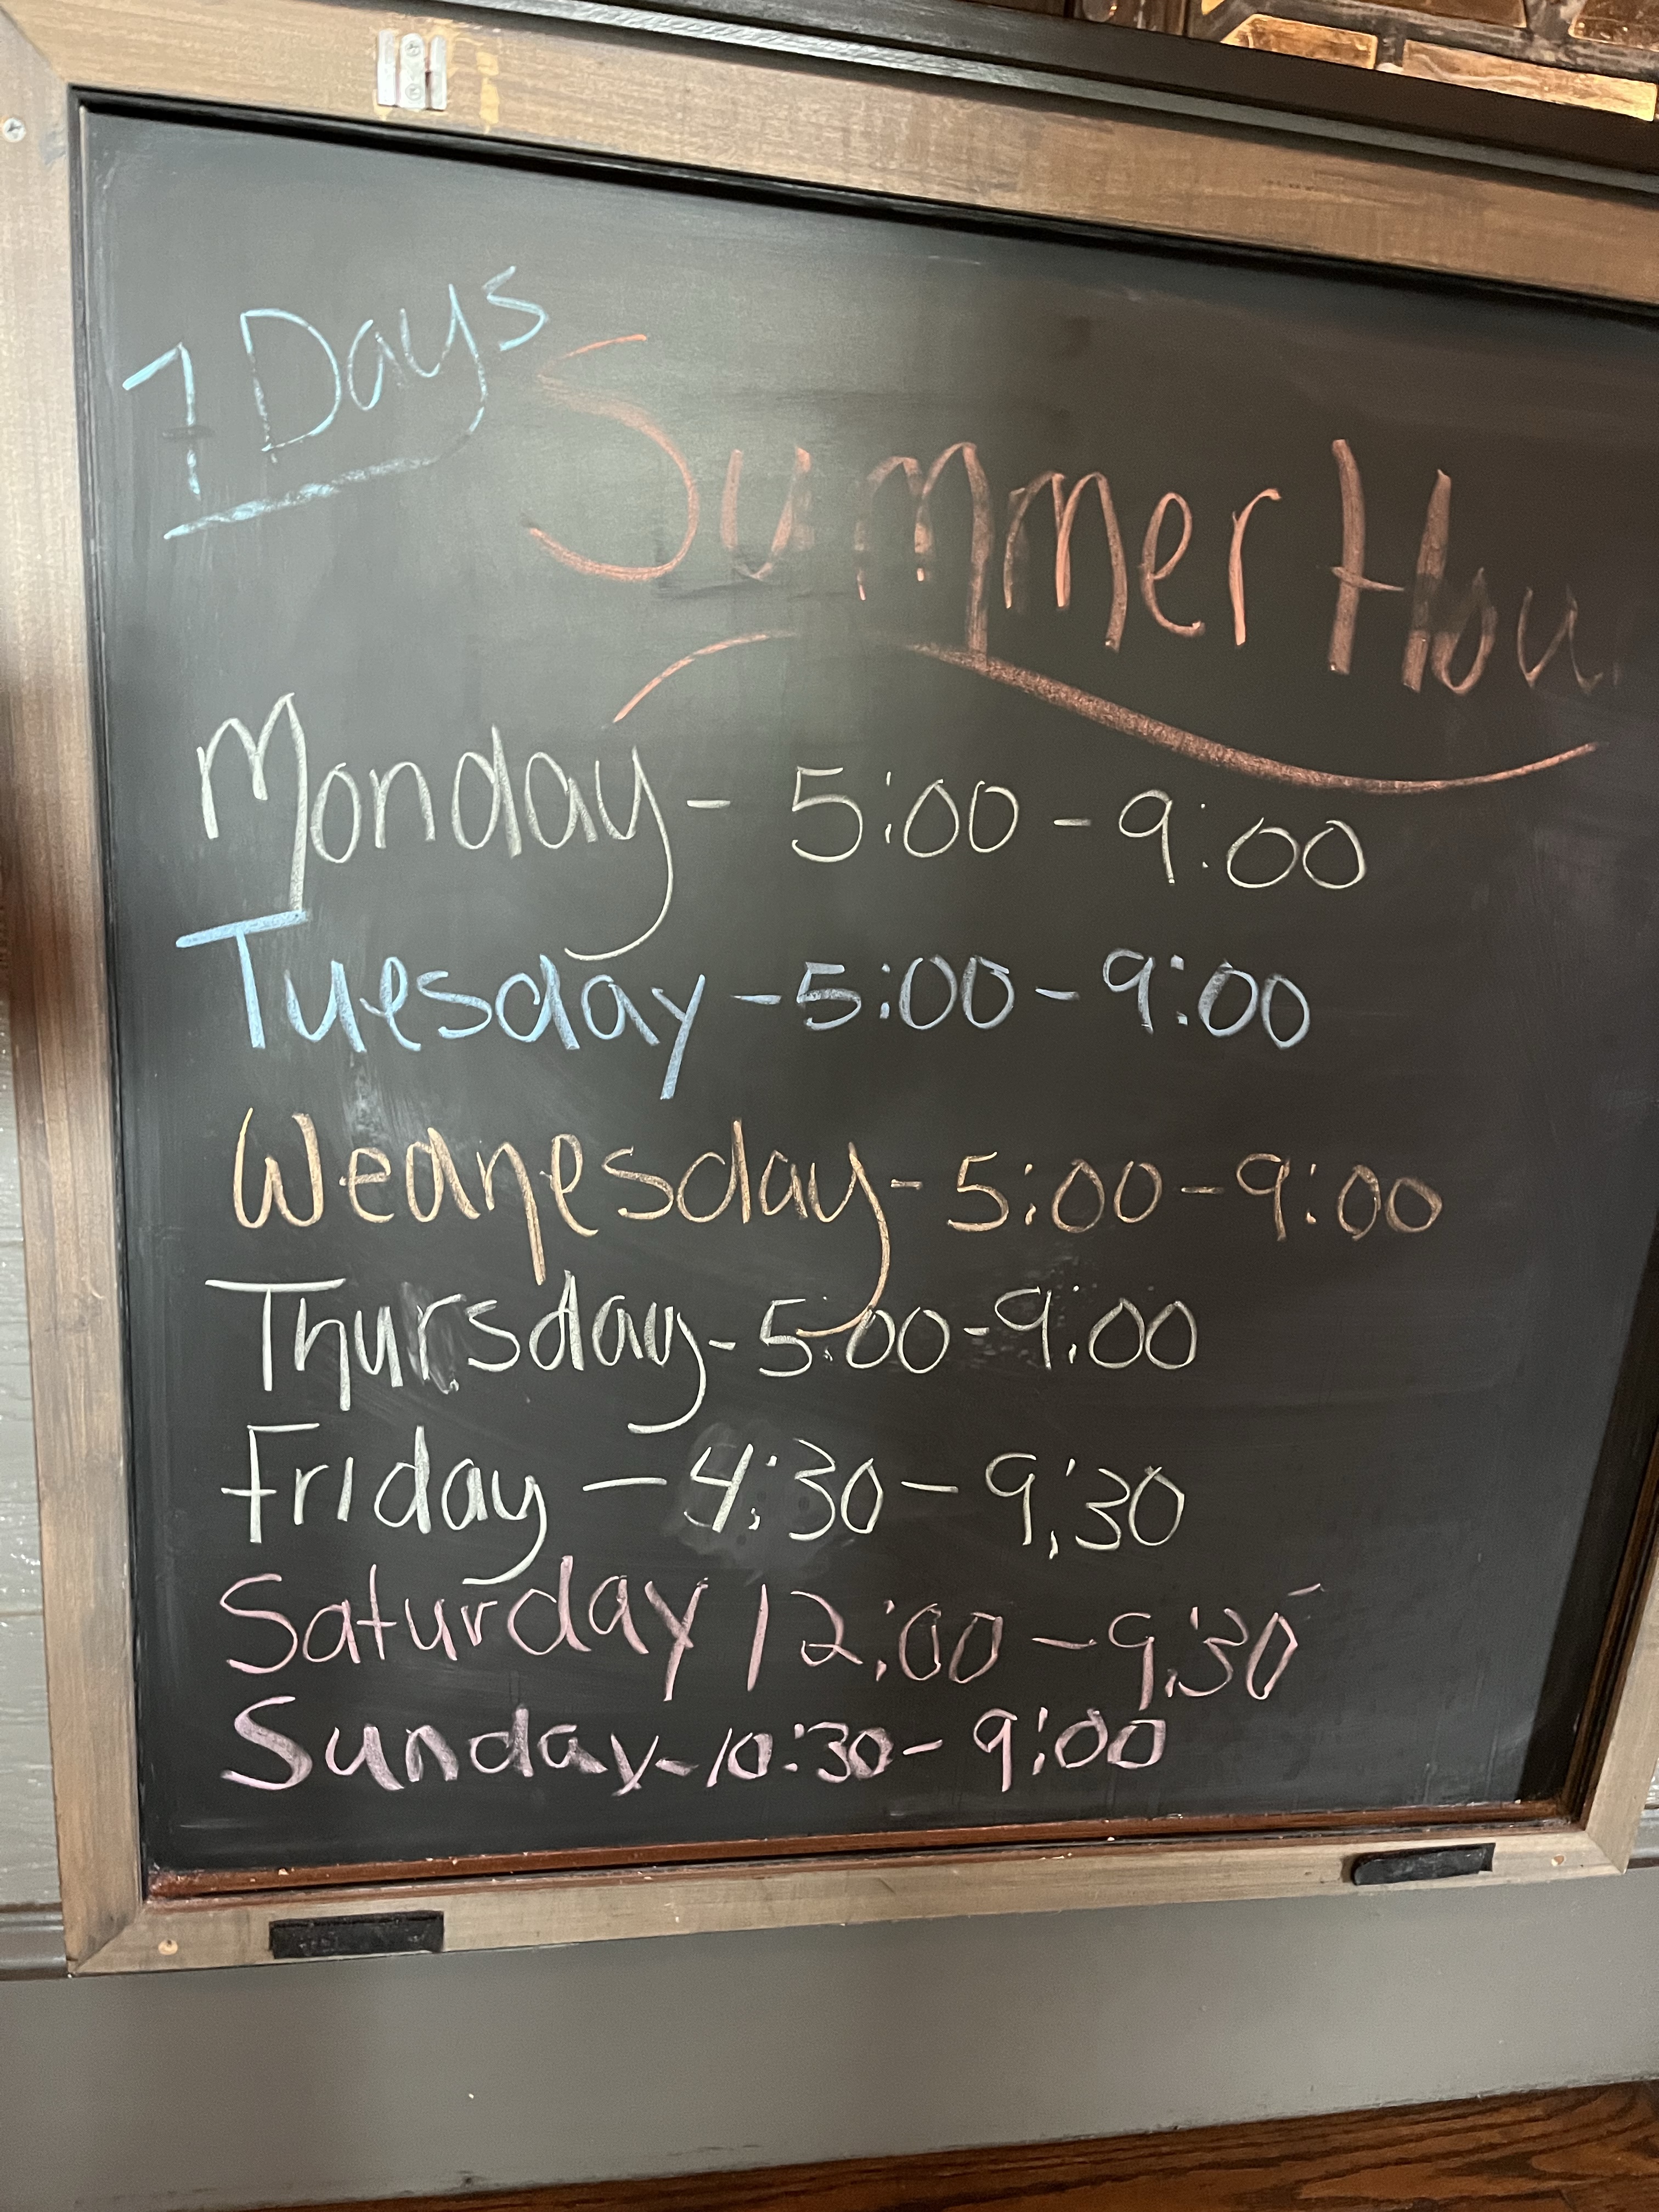 7 Days
Summer Hou
Monday - 5:00 - 9:00
Tuesday - 5:00 - 9:00
Wednesday - 5:00 - 9:00
Thursday - 5:00 - 9:00
Friday - 4:30 - 9:30
Saturday 12:00 - 9:30
Sunday - 10:30 - 9:00